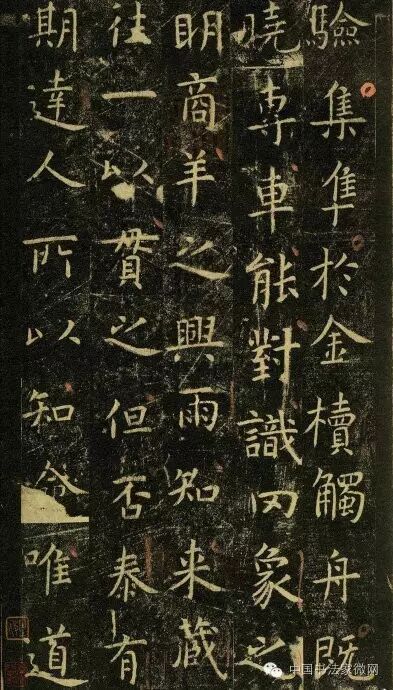 驗集隼於金櫝觸舟既
曉專車能對識罔象之
明商羊之興雨知来藏
往一以貫之但否泰有
期達人所以知命唯道
中国书法家微网